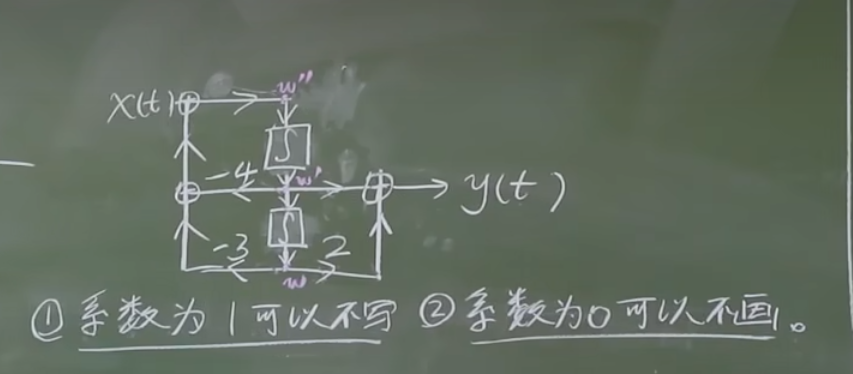 w''
x(t)
∫
-4 w' y(t)
∫
-3 2
w
① 系数为1可以不写 ② 系数为0可以不画。